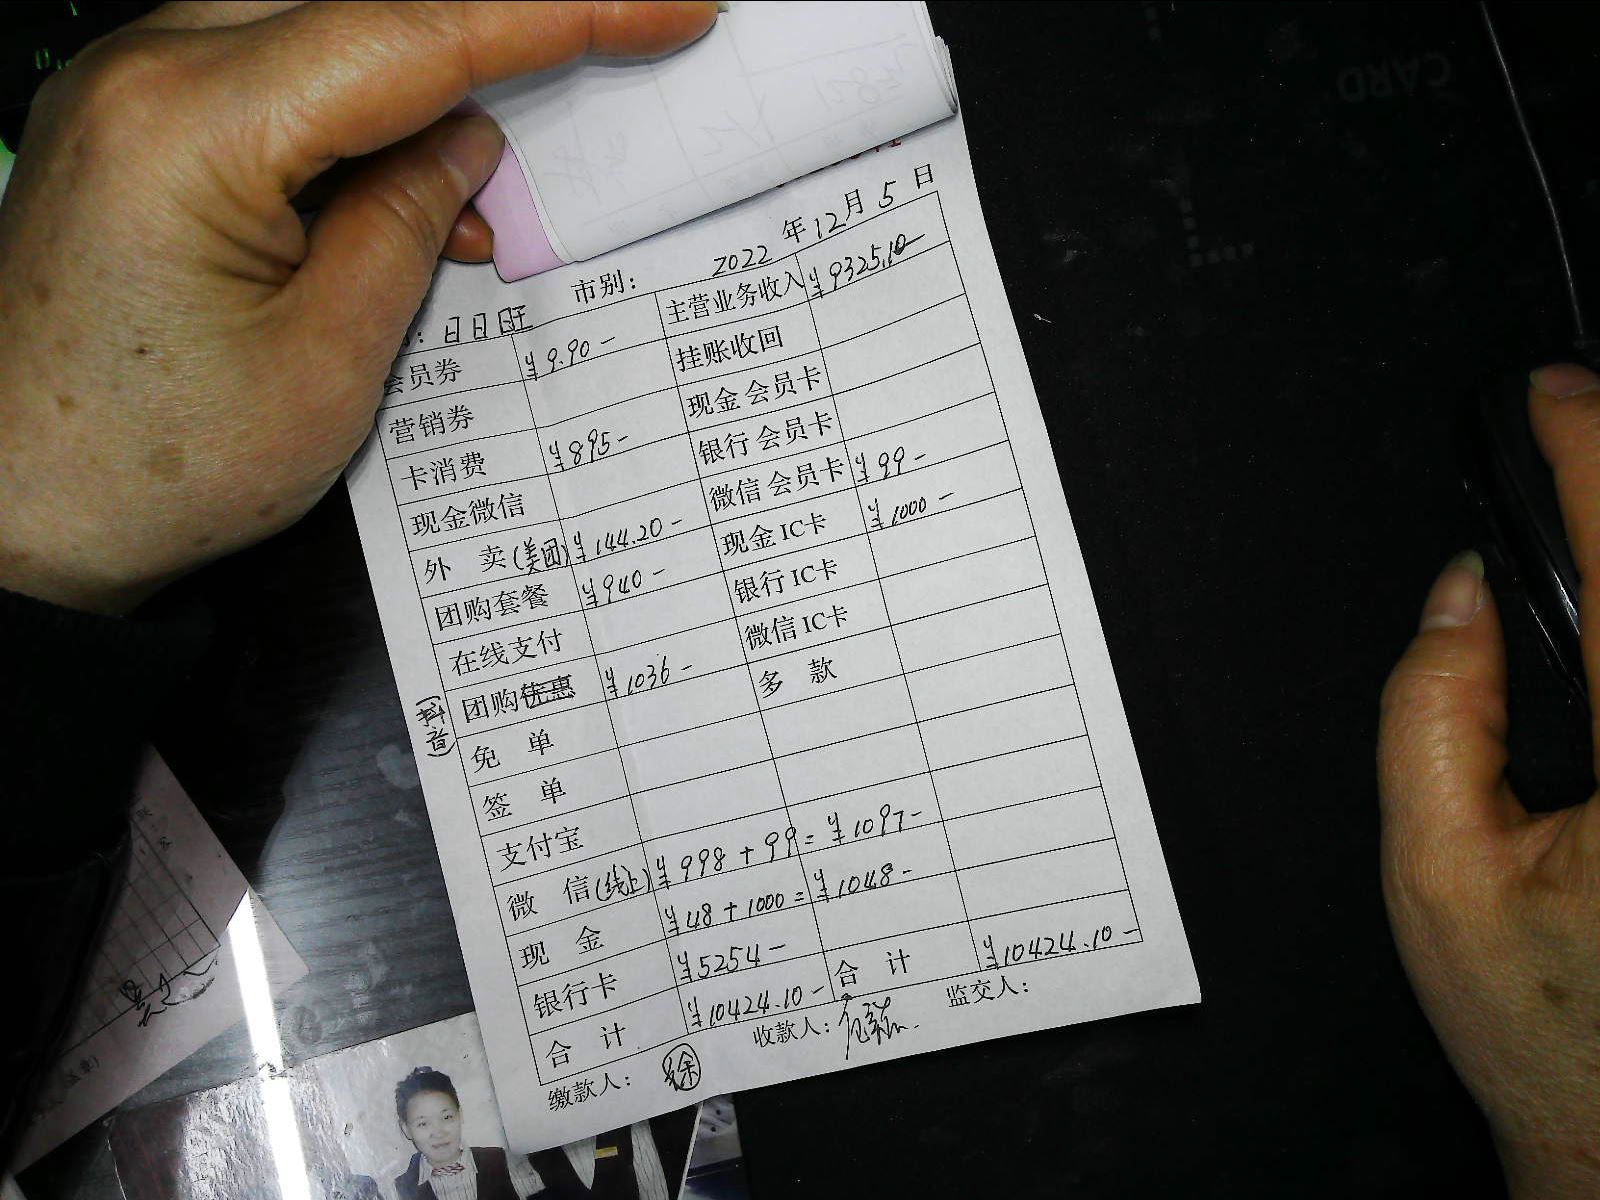 2022 年 12 月 5 日
: 日日旺 市别:
会员券 ¥9.90- 主营业务收入 ¥9325.10-
营销券 挂账收回
卡消费 ¥895- 现金会员卡
现金微信 银行会员卡
外 卖(美团) ¥144.20- 微信会员卡 ¥99-
团购套餐 ¥940- 现金IC卡 ¥1000-
在线支付 银行IC卡
团购优惠 (抖音) ¥1036- 微信IC卡
免 单 多 款
签 单
支付宝
微 信(线上) ¥998+99= ¥1097-
现 金 ¥48+1000= ¥1048-
银行卡 ¥5254-
合 计 ¥10424.10- 合 计 ¥10424.10-
缴款人: 徐 收款人: 监交人:
CARD